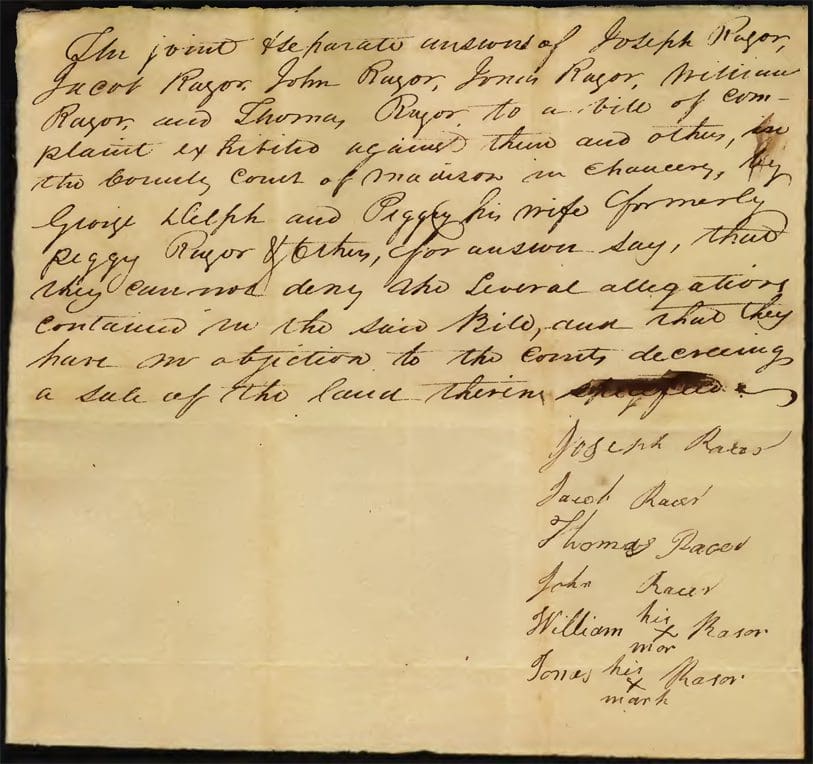 The joint & separate answers of Joseph Razor,
Jacob Razor, John Razor, Jonas Razor, William
Razor, and Thomas Razor, to a bill of com-
plaint exhibited against them and others, in
the County Court of Madison in Chancery, by
George Delph and Peggy his wife formerly
peggy Razor & others, for answer say, that
they can not deny the several allegations
contained in the said Bill, and that they
have no objection to the Courts decreeing
a sale of the land therein specified.
Joseph Racer
Jacob Racer
Thomas Racer
John Racer
William his x mar Rasor
Jonas his x mark Rasor